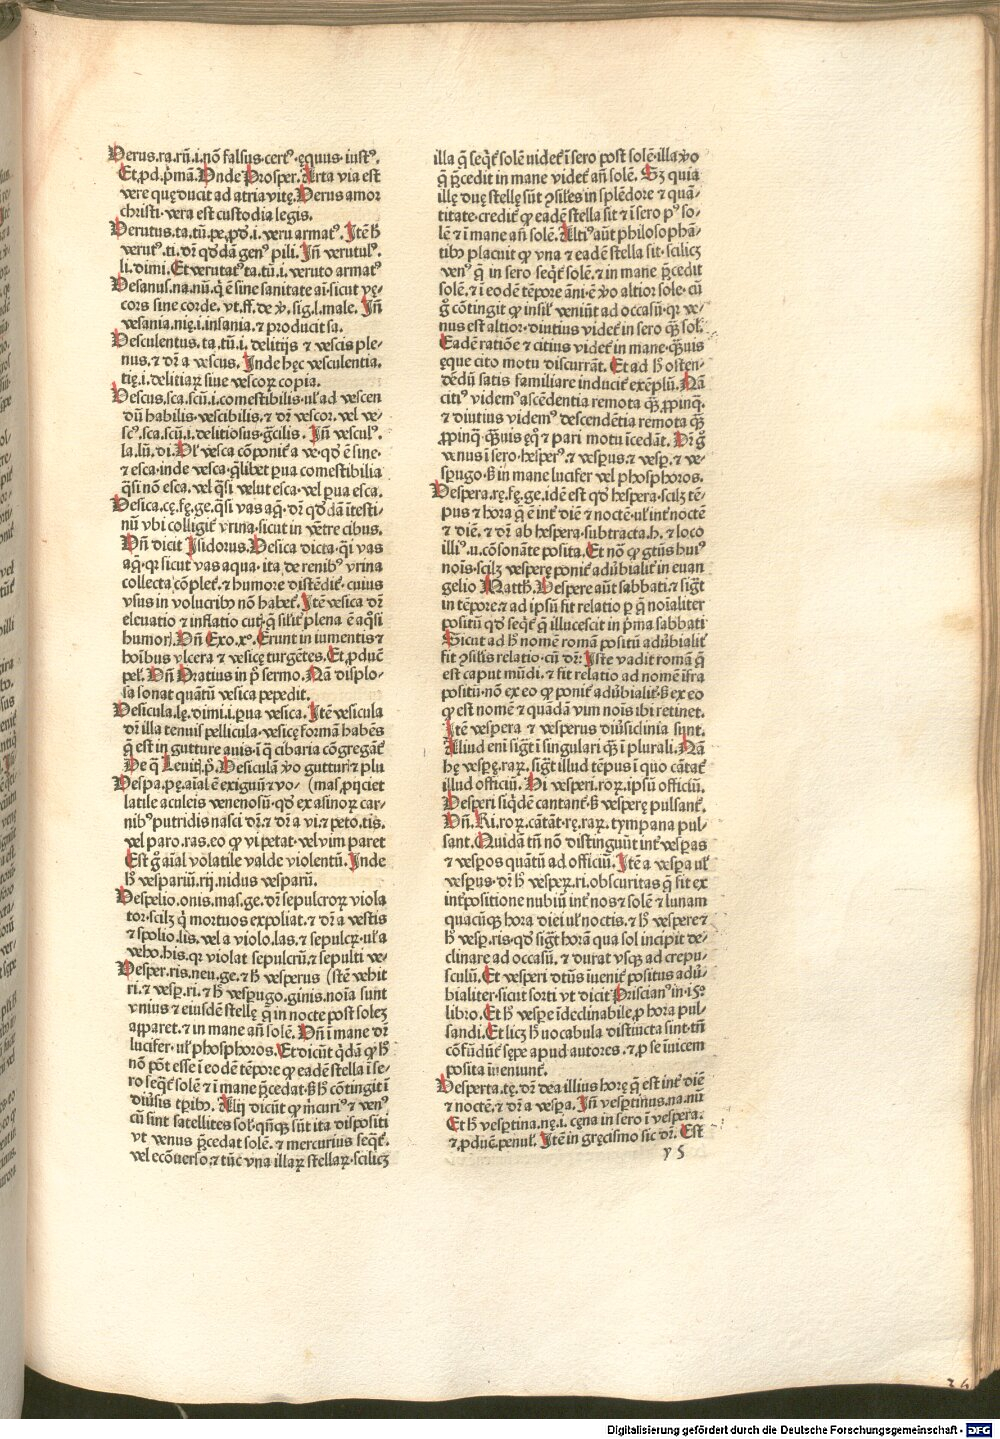 Verus.ra.rū.i.nō falsus.certꝰ.ęquus.iustꝰ.
Et ꝓd.p̄mā. Vnde Prosper. Arta via est
vere quę ducit ad atria vitę. Verus amor
christi. vera est custodia legis.
Verutus.ta.tū.pe.ꝓd.i.veru armatꝰ. Itē h̄
verutꝰ.ti.dr̄ qd̓dā genꝰ pili. Iñ verutulꝰ.
li.dimi. Et verutatꝰ.ta.tū.i.veruto armatꝰ
Vesanus.na.nū.q̇ ē sine sanitate ai̇.sicut vę-
cors sine corde. vt.ff. de v̓.sig.l.male. Iñ
vesania.nię.i.insania.⁊ producit sa.
Vesculentus.ta.tū.i.delitijs ⁊ vescis ple-
nus.⁊ dr̄ a vescus. Inde hęc vesculentia.
tię.i.delitiaꝝ siue vescoꝝ copia.
Vescus.sca.scū.i.comestibilis.ul̓ ad vescen
dū habilis.vescibilis.⁊ dr̄ vescor. vel ve-
scꝰ.sca.scū.i.delitiosus.g̊cilis. Iñ vesculꝰ.
la.lū.di. Vl̓ vesca cōponit̄ a ve.qd̓ ē sine.
⁊ esca.inde vesca.q̄libet ꝑua comestibilia
q̄si nō esca. vel q̄si velut esca.vel ꝑua esca.
Vesica.cę.fę.ge.q̄si vas aq̄.dr̄ qd̓dā ītesti-
nū vbi colligit̄ vrina.sicut in vētre cibus.
Vñ dicit Isidorus. Vesica dicta.q̄i vas
aq̄.qꝛ sicut vas aqua.ita de renibꝰ vrina
collecta cōplet̄.⁊ humore distēdit̄.cuius
vsus in volucribꝰ nō habet̄. Itē vesica dr̄
eleuatio ⁊ inflatio cutꝭ.q̄ silit̓ plena ē aq̄si
humorꝭ. Vñ Exo.xº. Erunt in iumentis ⁊
hoībus vlcera ⁊ vesicę turgētes. Et ꝓduc̄
pel̓. Vñ Oratius in p̄ sermo. Nā displo-
sa sonat quātū vesica pepedit.
Vesicula.lę.dimi.i.ꝑua vesica. Itē vesicula
dr̄ illa tenuis pellicula.vesicę formā habēs
q̄ est in gutture auis.i q̄ cibaria cōgregāt̄
De q̄ Leuitꝭ.p̄. Vesiculā v̓o gutturꝭ ⁊ plu
Vespa.pę.aīal ē exiguū ⁊ vo- (mas ꝓijciet
latile aculeis venenosū.qd̓ ex asinoꝝ car-
nibꝰ putridis nasci dr̄.⁊ dr̄ a vi ⁊ peto.tis.
vel paro.ras.eo ꝙ vi petat.vel vim paret
Est g̊ aīal volatile valde violentū. Inde
h̄ vespariū.rij.nidus vesparū.
Vespelio.onis.mas.ge.dr̄ sepulcroꝝ viola
tor.scilꝫ q̇ mortuos expoliat.⁊ dr̄ a vestis
⁊ spolio.lis.vel a violo.las.⁊ sepulcꝝ.ul̓ a
veho.his.qꝛ violat sepulcrū.⁊ sepulti ve-
Vesper.ris.neu.ge.⁊ h̄ vesperus (stē vehit
ri.⁊ vesꝑ.ri.⁊ h̄ vesꝑugo.ginis.noīa sunt
vnius ⁊ eiusdē stellę q̄ in nocte post solē
apparet.⁊ in mane añ solē. Vñ ī mane dr̄
lucifer.ul̓ phosphoros. Et dicūt q̇dā ꝙ h̄
nō pōt esse ī eodē tēpore ꝙ eadē stella ī se-
ro seqt̄ solē ⁊ ī mane p̄cedat.s̄ h̄ cōtingit ī
diūsis tꝑibꝰ. Alij dicūt ꝙ m̄curiꝰ ⁊ venꝰ
cū sint satellites sol̓.qn̄qꝫ sūt ita dispositi
vt venus p̄cedat solē.⁊ mercurius seqt̄.
vel ecōuerso.⁊ tūc vna illaꝝ stellaꝝ.scilicꝫ
illa q̄ seqt̄ solē uidet̄ ī sero post solē.illa v̓o
q̄ p̄cedit in mane videt̄ añ solē. Sꝫ quia
illę duę stellę sūt ꝯsiles in splēdore ⁊ quā-
titate.credit̄ ꝙ eadē stella sit ⁊ ī sero pꝰ so-
lē ⁊ ī mane añ solē. Altiꝰ aūt philosophā-
tibꝰ placuit ꝙ vna ⁊ eadē stella sit.scilicꝫ
venꝰ q̄ in sero seqt̄ solē.⁊ in mane p̄cedit
solē.⁊ ī eodē tēpore āni.ē v̓o altior sole.cū
g̊ cōtingit ꝙ insil̓ veniūt ad occasū.qꝛ ve-
nus est altior.diutius videt̄ in sero q̄ꝫ sol̓.
Eadē ratiōe ⁊ citius videt̄ in mane.q̄ꝫuis
ęque cito motu discurrāt. Et ad h̄ osten-
dēdū satis familiare inducit̄ exēplū. Nā
citiꝰ videmꝰ ascēdentia remota q̄ꝫ ꝓpinq̄.
⁊ diutius videmꝰ descendētia remota q̄ꝫ
ꝓpinq̄.q̄ꝫuis ęq̄ ⁊ pari motu īcedāt. Dr̄ g̊
venus ī sero.hesperꝰ.⁊ vesꝑus.⁊ vesꝑ.⁊ ve-
sꝑugo.s̄ in mane lucifer vel phosphoros.
Vespera.rę.fę.ge.idē est qd̓ hespera.scilꝫ tē-
pus ⁊ hora q̄ ē int̓ diē ⁊ noctē.ul̓ int̓ noctē
⁊ diē.⁊ dr̄ ab hespera.subtracta.h.⁊ loco
illiꝰ.u.cōsonāte posita. Et nō ꝙ gtūs huiꝰ
noīs.scilꝫ vesperę ponit̄ adūbialit̓ in euan
gelio Matth. Vespere aūt sabbati.⁊ sigt̄
in tēpore.⁊ ad ipsū fit relatio p q̄ noīaliter
positū qd̓ seqt̄ q̄ illucescit in p̄ma sabbati
Sicut ad h̄ nomē romā positū adūbialit̓
fit ꝯsilis relatio.cū dr̄. Iste vadit romā q̄
est caput mūdi.⁊ fit relatio ad nomē īfra
positū.nō ex eo ꝙ ponit̄ adūbialit̓.s̄ ex eo
ꝙ est nomē ⁊ quādā vim noīs ibi retinet.
Itē vespera ⁊ vesperus diūsiclinia sunt.
Aliud enī sigt̄ ī singulari q̄ꝫ ī plurali. Nā
hę vesꝑę.raꝝ.sigt̄ illud tēpus ī quo cātat̄
illud officiū. Hi vesperi.roꝝ.ipsū officiū.
Vesperi siq̇dē cantant̄.s̄ vesperę pulsant̄.
Vñ. Ri.roꝝ.cātāt.rę.raꝝ.tympana pul-
sant. Quidā tn̄ nō distinguūt int̓ vesꝑas
⁊ vesꝑos quātū ad officiū. Itē a vesꝑa ul̓
vesꝑus.dr̄ h̄ vesꝑeꝝ.ri.obscuritas q̄ fit ex
int̓positione nubiū int̓ nos ⁊ solē ⁊ lunam
quacūqꝫ hora diei ul̓ noctis.⁊ h̄ vespere ⁊
h̄ vesꝑ.ris.qd̓ sigt̄ horā qua sol incipit de-
clinare ad occasū.⁊ durat vsqꝫ ad crepu-
sculū. Et vesperi dtūs īuenit̄ positus adū-
bialiter.sicut sorti vt dicit Priscianꝰ in.15º
libro. Et h̄ vespe īdeclinabile.ꝓ hora pul-
sandi. Et licꝫ h̄ uocabula distincta sint.tn̄
cōfūdūt̄ sępe apud autores.⁊ ꝓ se īuicem
posita īueniunt̄.
Vesperta.tę.dr̄ dea illius horę q̄ est int̓ diē
⁊ noctē.⁊ dr̄ a vesꝑa. Iñ vesꝑtinus.na.nū
Et h̄ vesꝑtina.nę.i.cęna in sero ī vespera.
⁊ ꝓduc̄.penul̓. Itē in gręcismo sic dr̄. Est
y 5
36
Digitalisierung gefördert durch die Deutsche Forschungsgemeinschaft - DFG